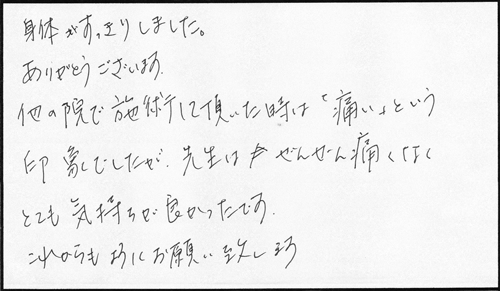 身体がすっきりしました。
ありがとうございます.
他の院で施術して頂いた時は「痛い」という
印象でしたが、先生は ぜんぜん痛くなく
とても気持ちが良かったです.
これからも お願い致します